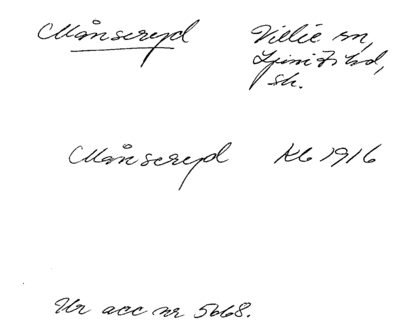 Månseryd Villie sn,
Ljunits hd,
Sk.
Månseryd Kb 1916
Ur acc nr 5668.